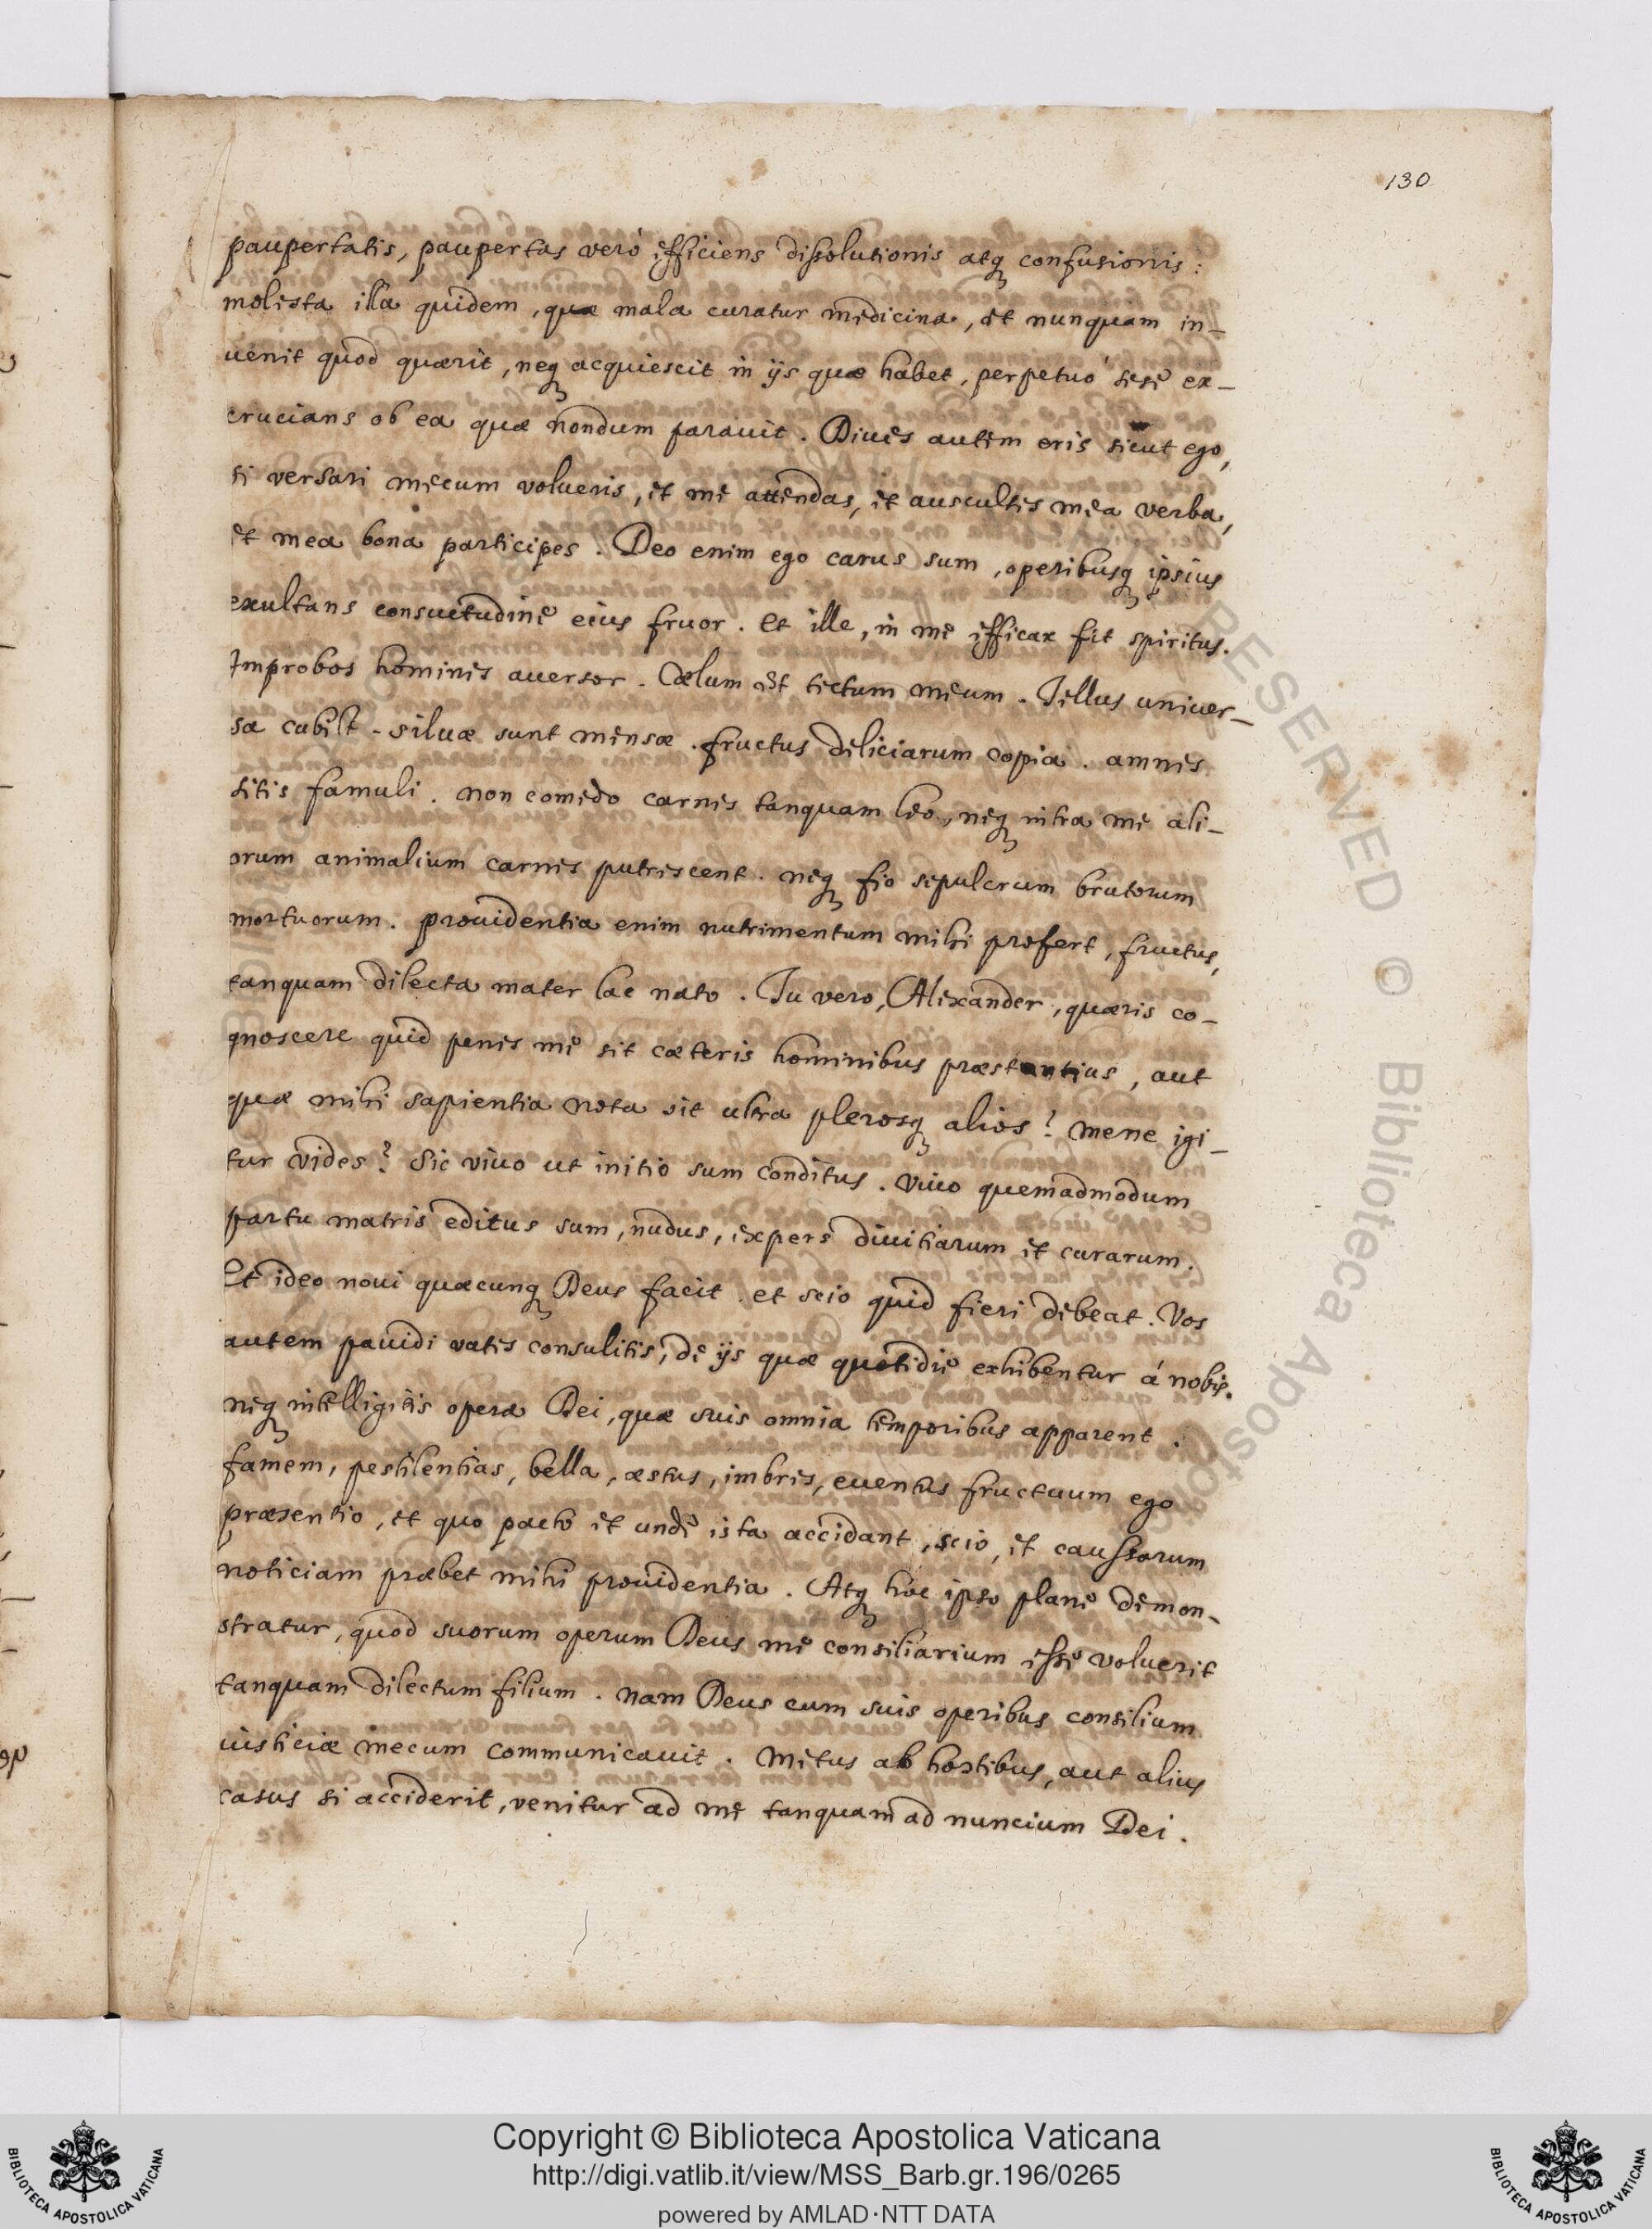 130
paupertatis, paupertas verò efficiens dissolutionis atq confusionis:
molesta illa quidem, quæ mala curatur medicina, et nunquam in-
uenit quod quærit, neq acquiescit in ijs quæ habet, perpetuò sese ex-
crucians ob ea quæ nondum parauit. Diues autem eris sicut ego,
si versari mecum volueris, et me attendas, et auscultes mea verba,
et mea bona participes. Deo enim ego carus sum, operibusq ipsius
exultans consuetudine eius fruor. et ille, in me efficax fit spiritus.
Improbos homines auersor. Cælum est tectum meum. Tellus uniuer-
sa cubile. siluæ sunt mensæ. fructus deliciarum copia. amnes
sitis famuli. non comedo carnes tanquam leo, neq intra me ali-
orum animalium carnes putrescent. neq fio sepulcrum brutorum
mortuorum. prouidentia enim nutrimentum mihi profert, fructus,
tanquam dilecta mater lac nato. Tu vero, Alexander, quæris co-
gnoscere quid penes me sit cæteris hominibus præstantius, aut
quæ mihi sapientia nota sit ultra plerosq alios? mene igi-
tur vides? Sic viuo ut initio sum conditus. viuo quemadmodum
partu matris editus sum, nudus, expers diuitiarum et curarum.
Et ideo noui quæcunq Deus facit. et scio quid fieri debeat. Vos
autem pauidi vates consulitis, de ijs quæ quotidie exhibentur á nobis.
neq intelligitis opera Dei, quæ suis omnia temporibus apparent.
famem, pestilentias, bella, æstus, imbres, euentus fructuum ego
præsentio, et quo pacto et unde ista accidant, scio, et caussarum
noticiam præbet mihi prouidentia. Atq hoc ipso plane demon-
stratur, quod suorum operum Deus me consiliarium esse voluerit
tanquam dilectum filium. nam Deus cum suis operibus consilium
iusticiæ mecum communicauit. metus ab hostibus, aut alius
casus si acciderit, venitur ad me tanquam ad nuncium Dei.
RESERVED © Biblioteca Apostolica
Copyright © Biblioteca Apostolica Vaticana
http://digi.vatlib.it/view/MSS_Barb.gr.196/0265
powered by AMLAD·NTT DATA
BIBLIOTECA APOSTOLICA VATICANA
BIBLIOTECA APOSTOLICA VATICANA